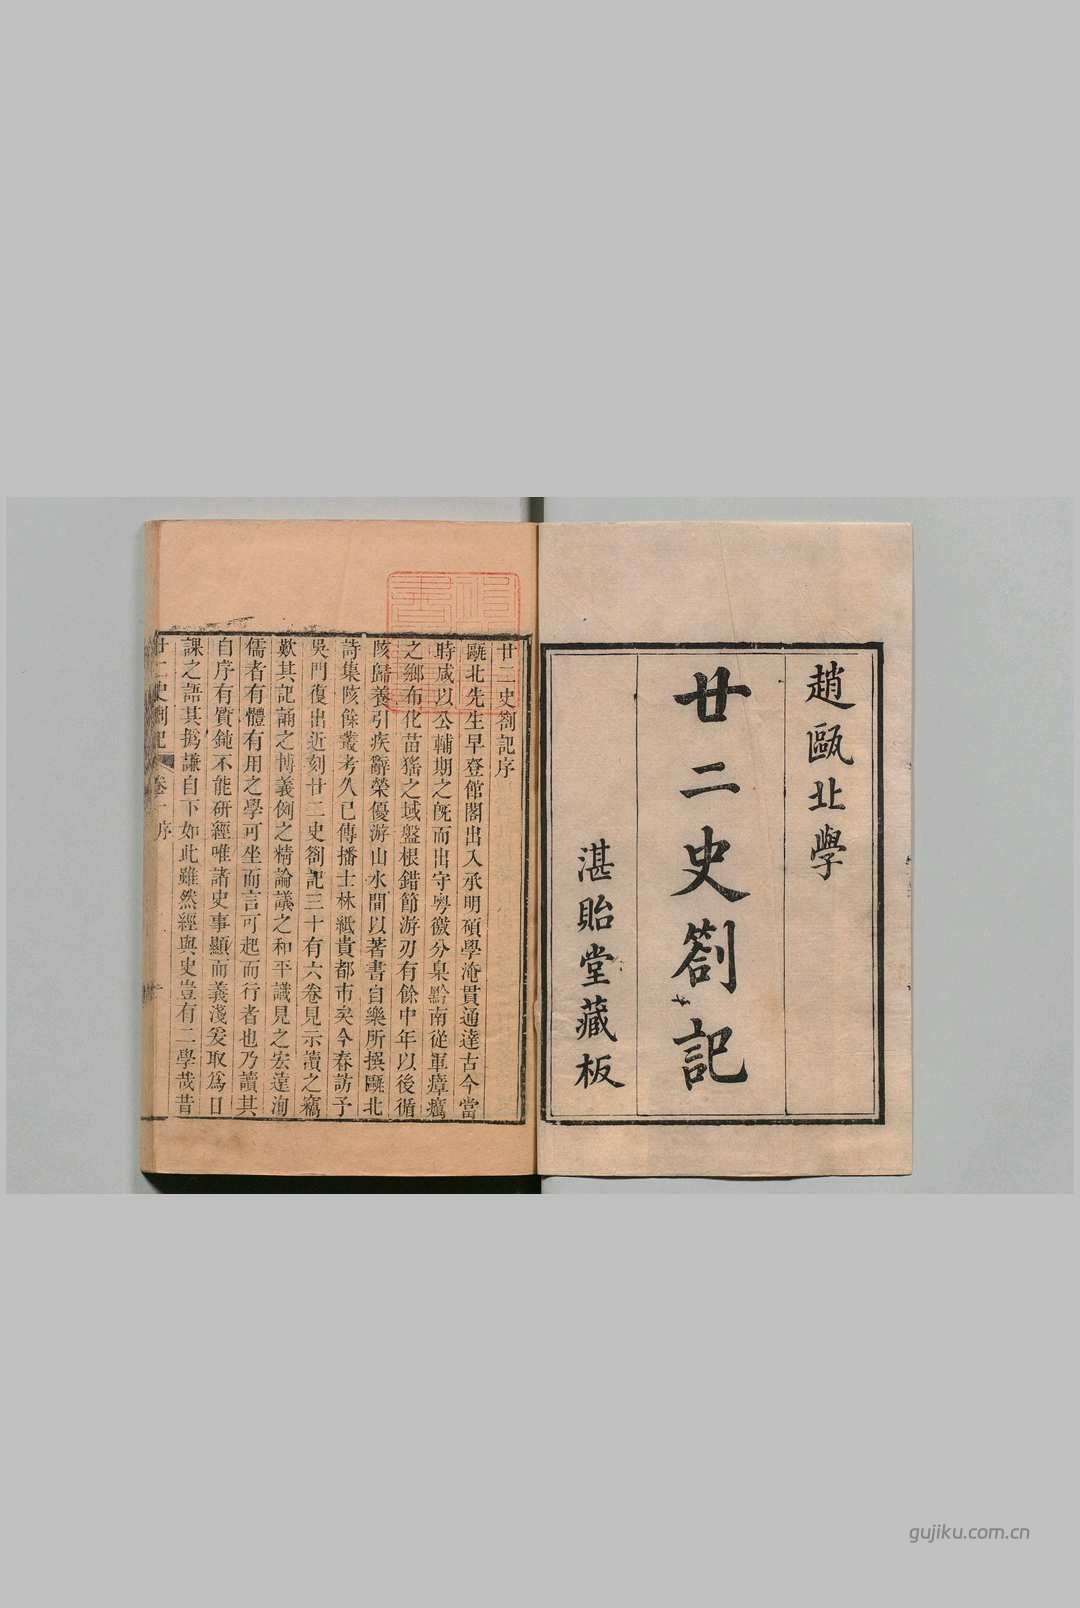 趙甌北學
廿二史劄記
湛貽堂藏板
廿二史劄記序
甌北先生早登館閣出入承明碩學淹貫通達古今當
時咸以公輔期之旣而出守粤徼分臬黔南從軍瘴癘
之鄉布化苗猺之域盤根錯節游刃有餘中年以後循
陔歸養引疾辭榮優游山水間以著書自樂所撰甌北
詩集陔餘叢考久已傳播士林紙貴都市矣今春訪予
吳門復出近刻廿二史劄記三十有六卷見示讀之竊
歎其記誦之博義例之精論議之和平識見之宏遠洵
儒者有體有用之學可坐而言可起而行者也乃讀其
自序有質鈍不能研經唯諸史事顯而義淺爰取爲日
課之語其撝謙自下如此雖然經與史豈有二學哉昔
廿二史劄記 卷一序
gujiku.com.cn